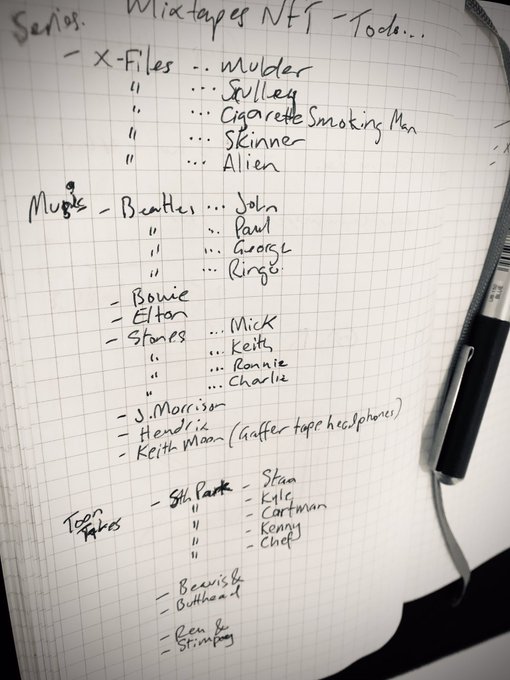 Series. Mixtapes NFT - Todo...
- X-Files ... Mulder
" ... Sculley
" ... Cigarette Smoking Man
" ... Skinner
" ... Alien
Music - Beatles ... John
" ... Paul
" ... George
" ... Ringo.
- Bowie
- Elton
- Stones ... Mick
" ... Keith
" ... Ronnie
" ... Charlie
- J. Morrison
- Hendrix
- Keith Moon (Gaffer tape headphones)
Toon - Sth Park - Stan
Takes " - Kyle
" - Cartman
" - Kenny
" - Chef
- Beavis &
- Butthead
- Ren &
- Stimpey
BLUE